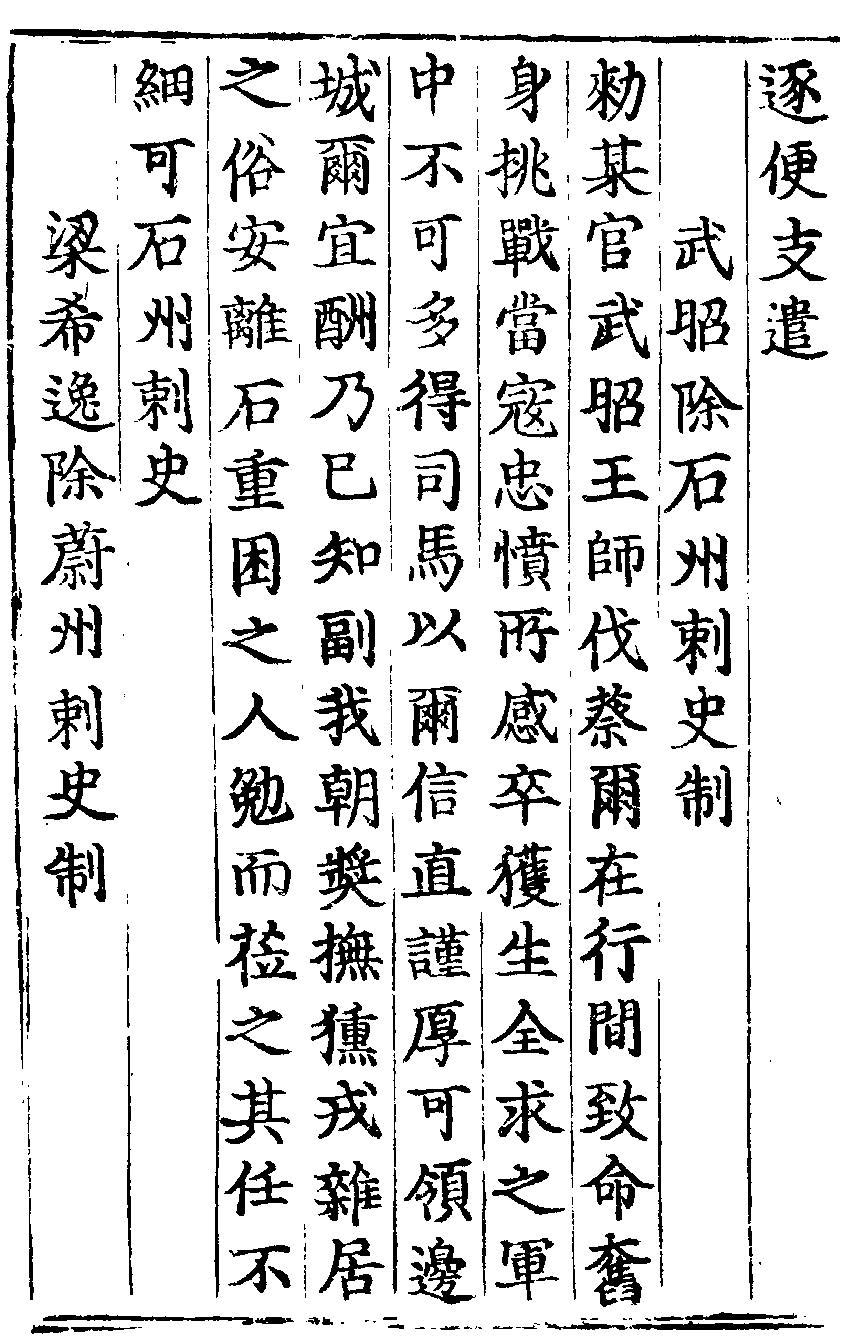 逐便支遣
武昭除石州刺史制
勑某官武昭王師伐蔡爾在行間致命奮
身挑戰當寇忠憤所感卒獲生全求之軍
中不可多得司馬以爾信直謹厚可領邊
城爾宜酬乃已知副我朝奬撫獯戎雜居
之俗安離石重困之人勉而莅之其任不
細可石州刺史
梁希逸除蔚州刺史制